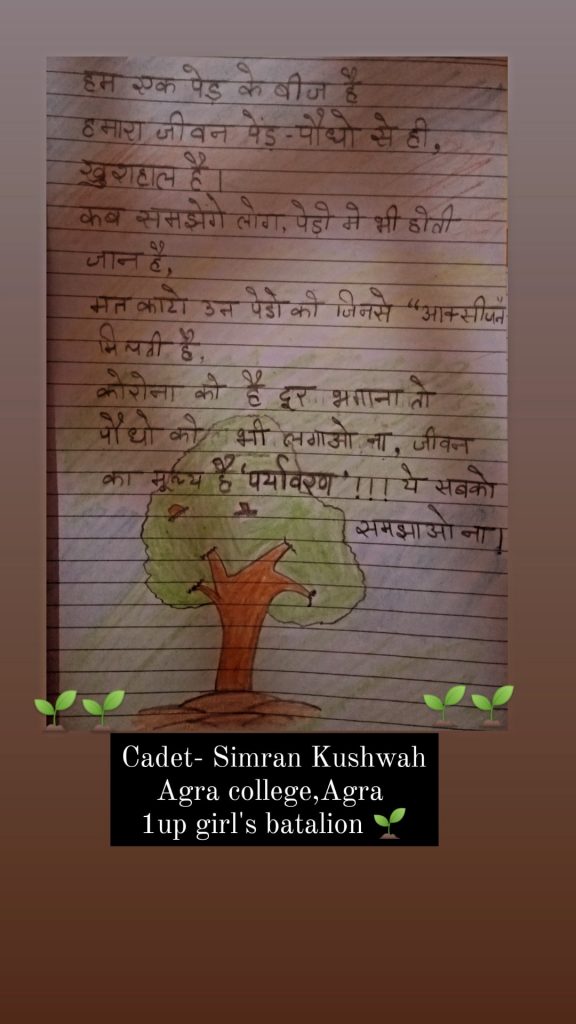 हम एक पेड़ के बीज है
हमारा जीवन पेंड़-पौधो से ही,
खुशहाल है।
कब समझेगे लोग, पेड़ो मे भी होती
जान है,
मत काटो उन पेडो को जिनसे "आक्सीजन
मिलती है,
कोरोना को है दूर भगाना तो
पौधो को भी लगाओ ना, जीवन
का मूल्य है 'पर्यावरण'!!! ये सबको
समझाओ ना।
Cadet- Simran Kushwah
Agra college,Agra
1up girl's batalion